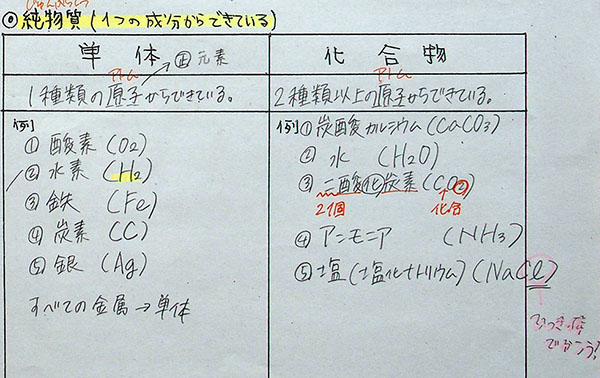 ◎純物質(1つの成分からできている)
単体
化合物
アトム
元素
アトム
1種類の原子からできている。
2種類以上の原子からできている。
例)
① 酸素 (O2)
② 水素 (H2)
③ 鉄 (Fe)
④ 炭素 (C)
⑤ 銀 (Ag)
すべての金属→単体
例)① 炭酸カルシウム (CaCO3)
② 水 (H2O)
③ 二酸化炭素 (CO2)
2個
化合
④ アンモニア (NH3)
⑤ 塩 (塩化ナトリウム) (NaCl)
ひっき体
でかこう!